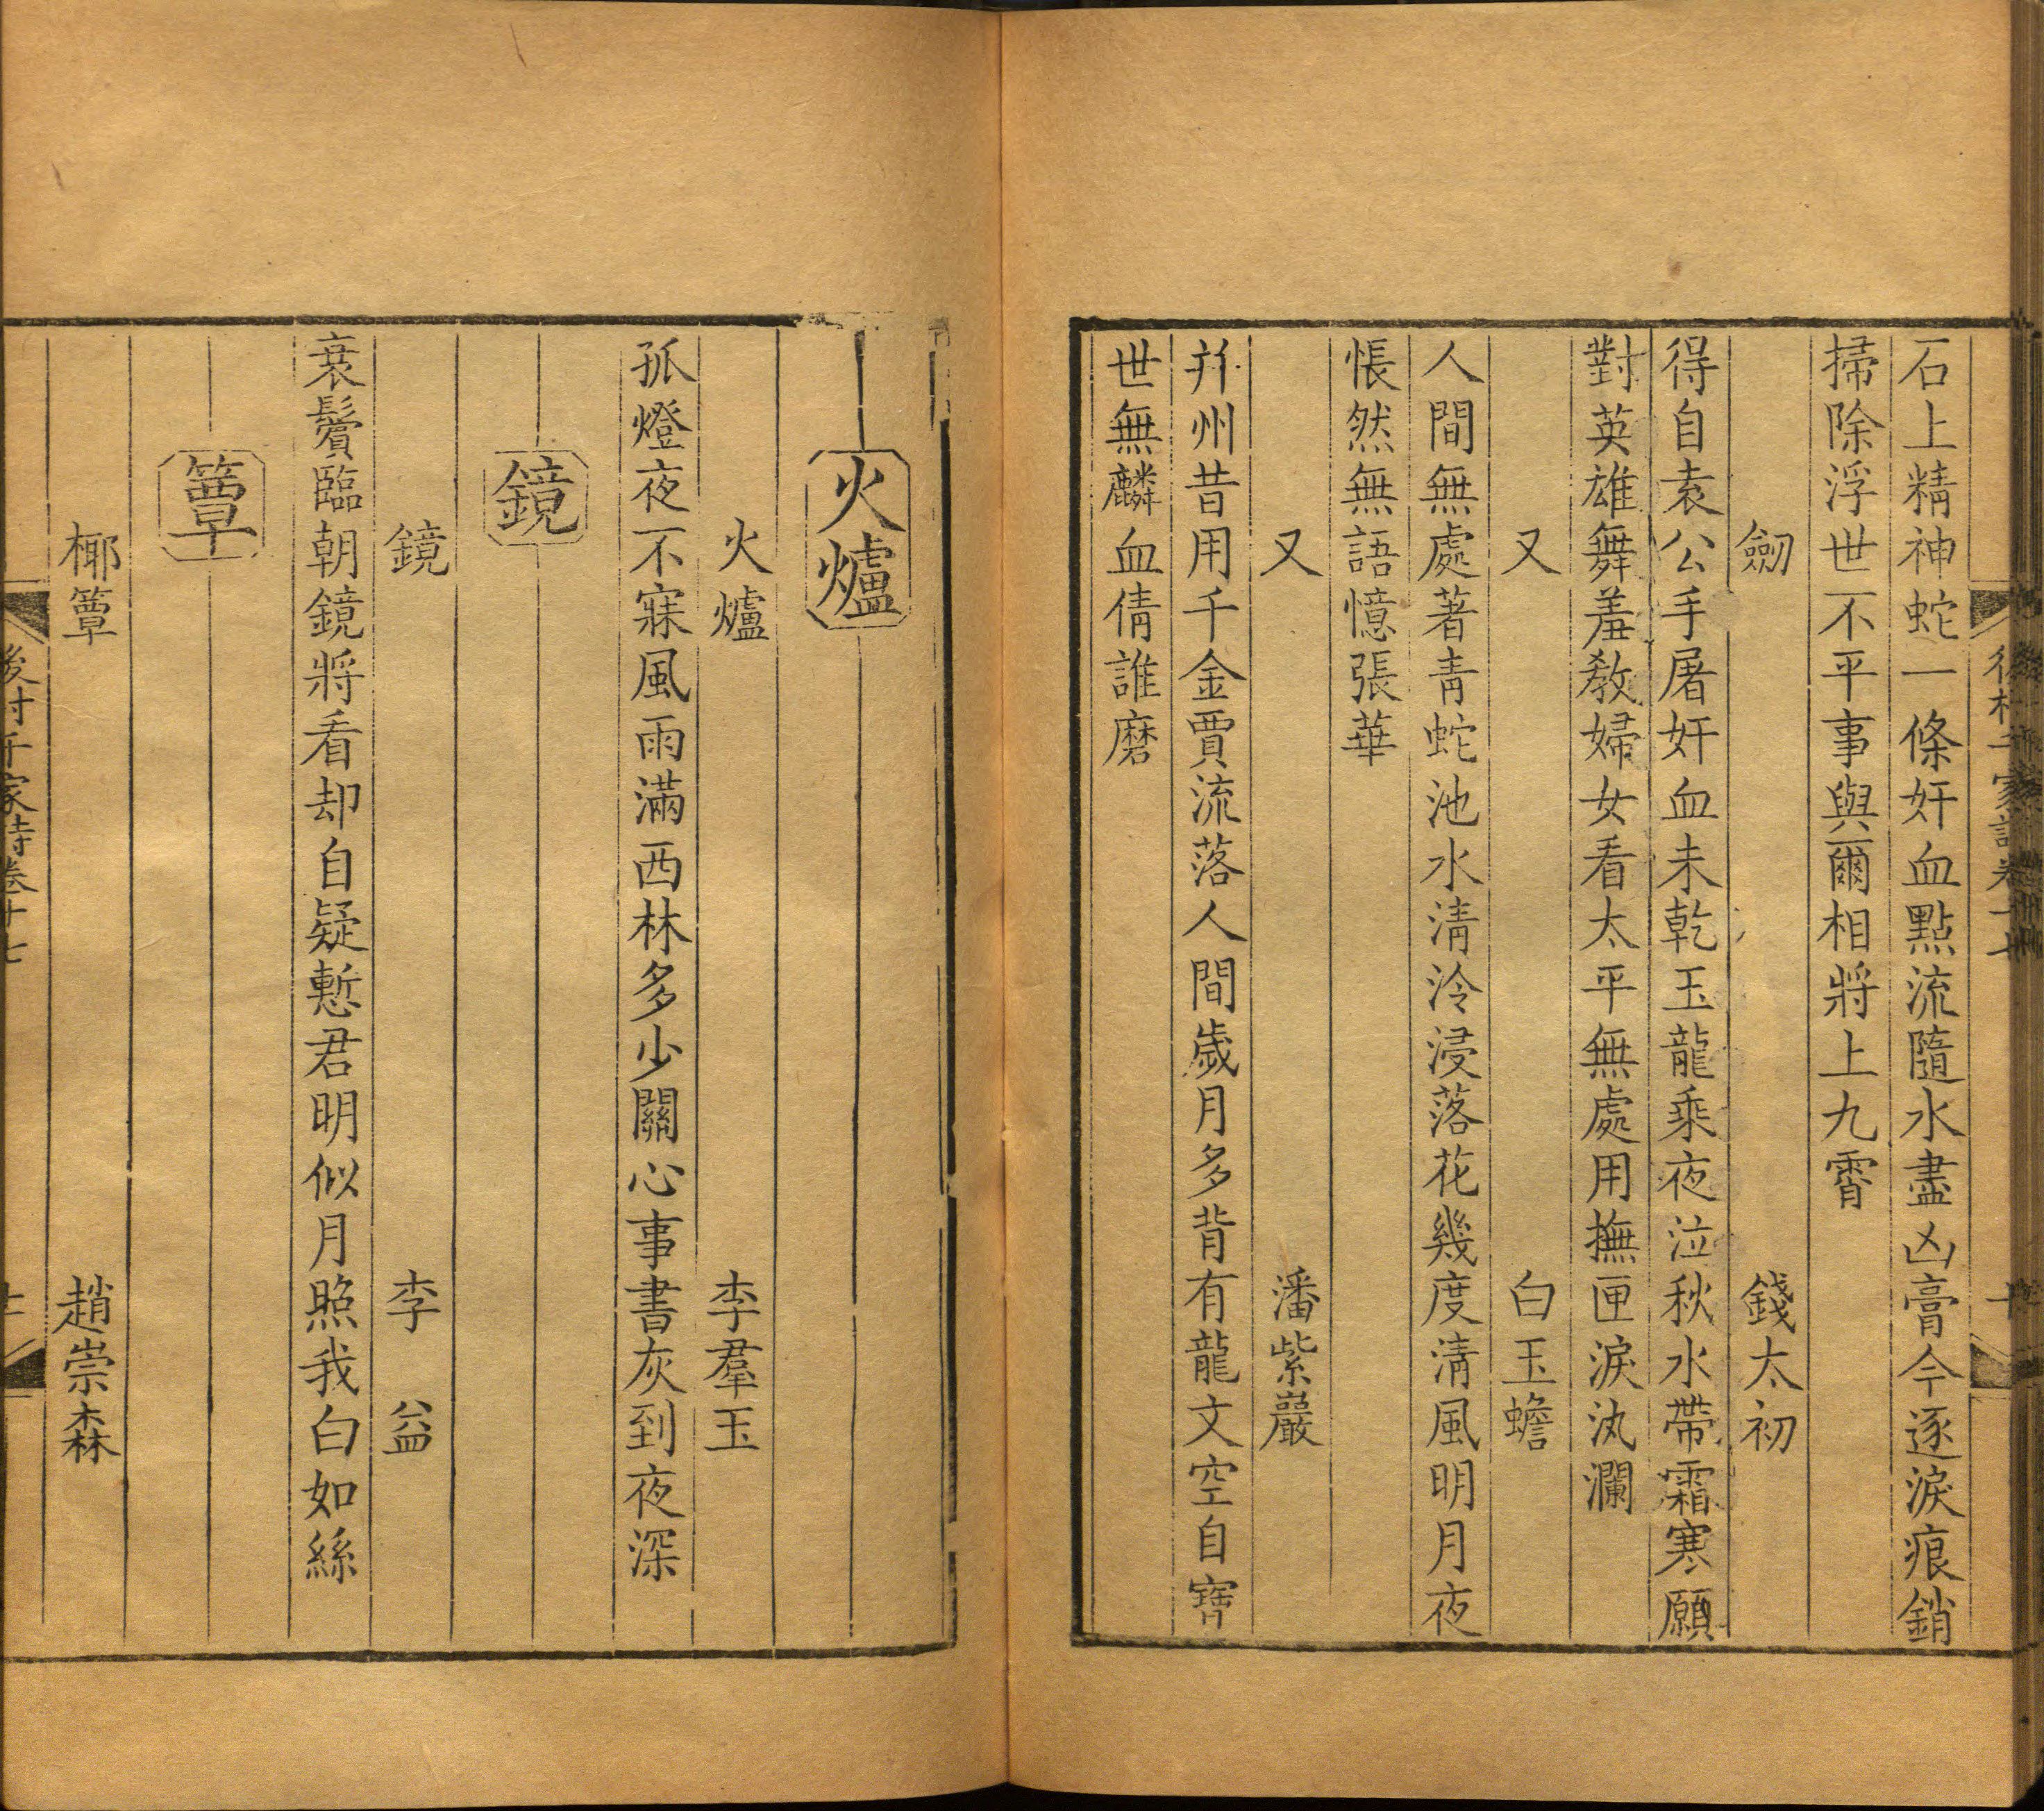 石上精神蛇一條奸血㸃流隨水盡凶膏今逐淚痕銷
掃除浮世不平事與爾相將上九霄
劒　錢太初
得自袁公手屠奸血未乾玉龍乘夜泣秋水帶霜寒願
對英雄舞羞敎婦女看太平無處用撫匣淚汍瀾
又　白玉蟾
人間無處著青蛇池水淸泠浸落花幾度淸風明月夜
悵然無語憶張華
又　潘紫巖
幷州昔用千金賈流落人間歲月多背有龍文空自寶
世無麟血倩誰磨
火爐
火爐　李羣玉
孤燈夜不寐風雨滿西林多少關心事書灰到夜深
鏡
鏡　李益
衰鬢臨朝鏡將看却自疑慙君明似月照我白如絲
簟
椰簟　趙崇森
後村千家詩卷十七